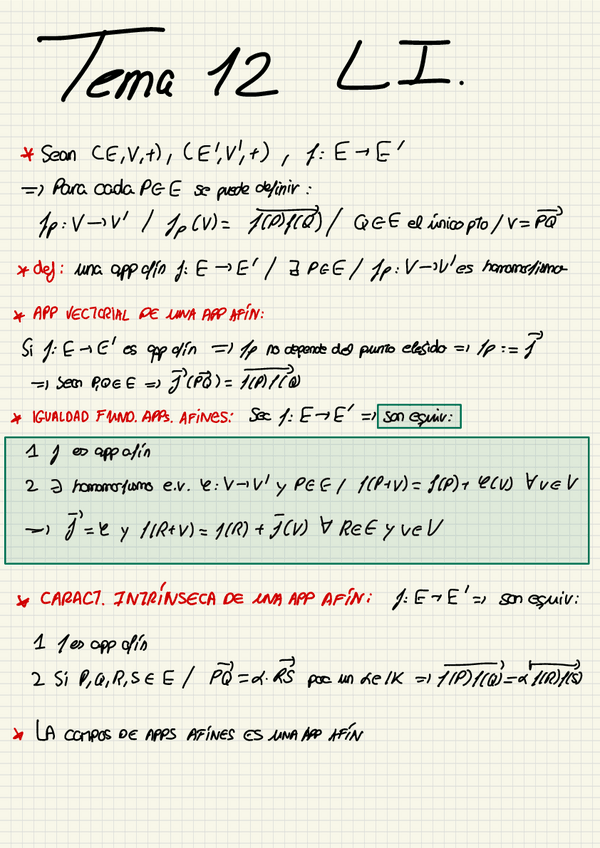 Tema 12 LI.
* Sean (E,V,+), (E',V',+), f: E → E'
=> Para cada P∈E se puede definir:
f_P: V → V' / f_P(v) = \overrightarrow{f(P)f(Q)} / Q∈E el único pto / v = \overrightarrow{PQ}
* def: una app afín f: E → E' / ∃ P∈E / f_P: V → V' es homomorfismo
* APP VECTORIAL DE UNA APP AFÍN:
Si f: E → E' es app afín => f_P no depende del punto elegido => f_P := \vec{f}
=> Sean P,Q∈E => \vec{f}(\overrightarrow{PQ}) = \overrightarrow{f(P)f(Q)}
* IGUALDAD FUND. APPS. AFINES: Sea f: E → E' => son equiv:
1 f es app afín
2 ∃ homomorfismo e.v. φ: V → V' y P∈E / f(P+v) = f(P) + φ(v) ∀ v∈V
→ \vec{f} = φ y f(R+v) = f(R) + \vec{f}(v) ∀ R∈E y v∈V
* CARACT. INTRÍNSECA DE UNA APP AFÍN: f: E → E' => son equiv:
1 f es app afín
2 Si P,Q,R,S ∈ E / \overrightarrow{PQ} = α·\overrightarrow{RS} para un α∈IK => \overrightarrow{f(P)f(Q)} = α \overrightarrow{f(R)f(S)}
* LA COMPOS DE APPS AFINES ES UNA APP AFÍN